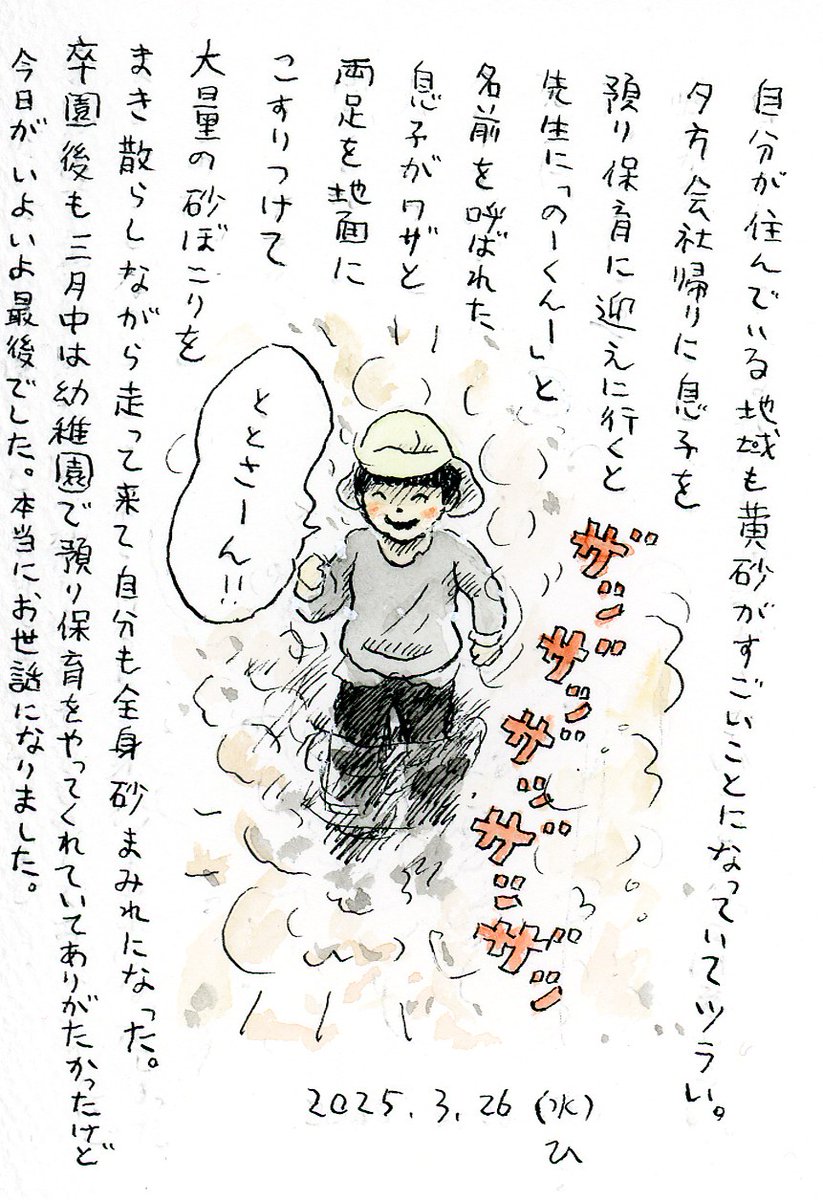 自分が住んでいる地域も黄砂がすごいことになっていてツラい。
夕方会社帰りに息子を
預り保育に迎えに行くと
先生に「のーくんー」と
名前を呼ばれた
息子がワザと
両足を地面に
こすりつけて
大量の砂ぼこりを
まき散らしながら走って来て自分も全身砂まみれになった。
卒園後も三月中は幼稚園で預り保育をやってくれていてありがたかったけど
今日がいよいよ最後でした。本当にお世話になりました。
ととさーん!!
ザッ
ザッ
ザッ
ザッ
ザッ
2025.3.26(水)
ひ